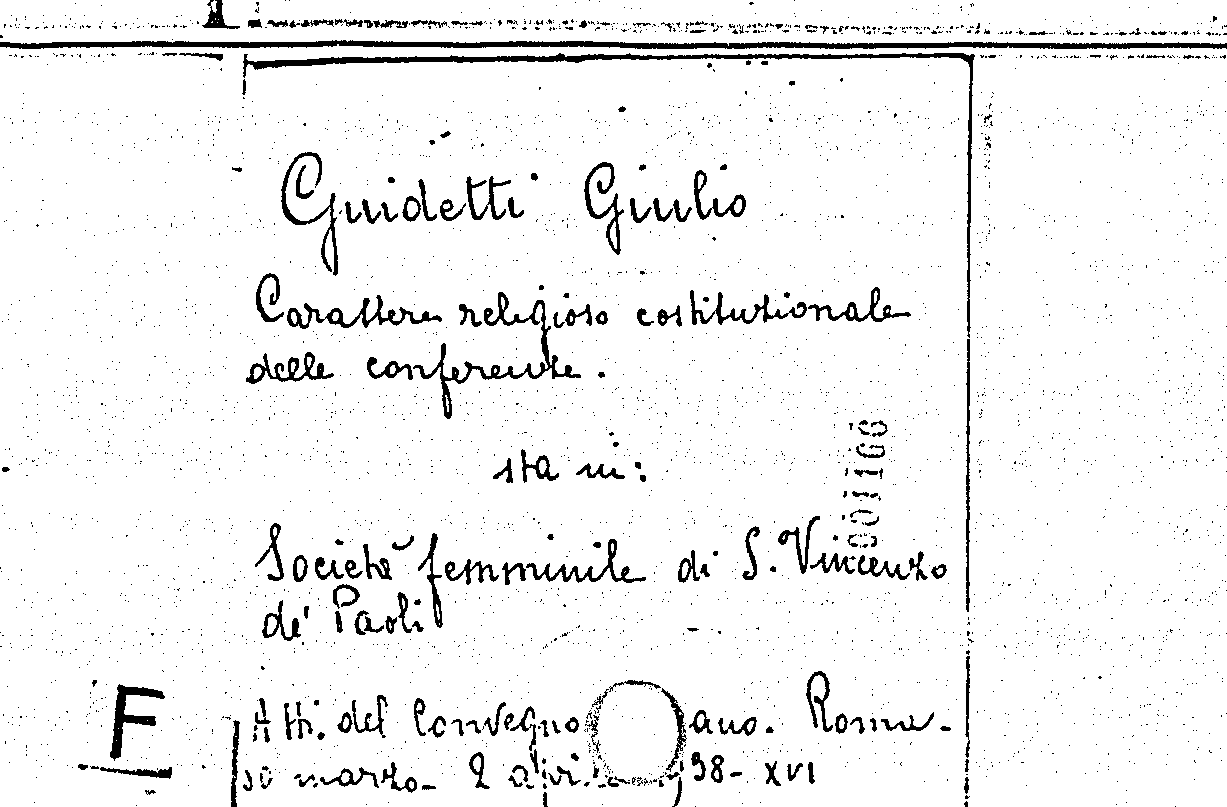 Guidetti Giulio
Carattere religioso costituzionale
delle conferenze.
sta in:
001166
Società femminile di S. Vincenzo
de' Paoli
Atti del Convegno ano. Roma.
F
30 marzo - 2 aprile 38 - XVI